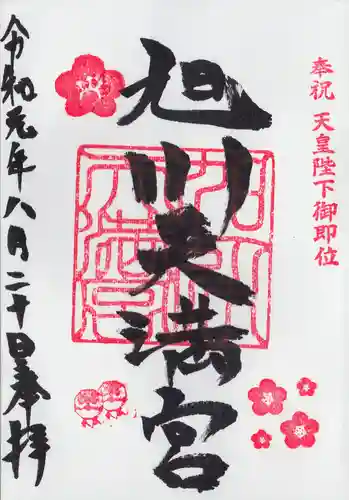 奉祝 天皇陛下御即位
旭川天満宮
令和元年八月二十日奉拝